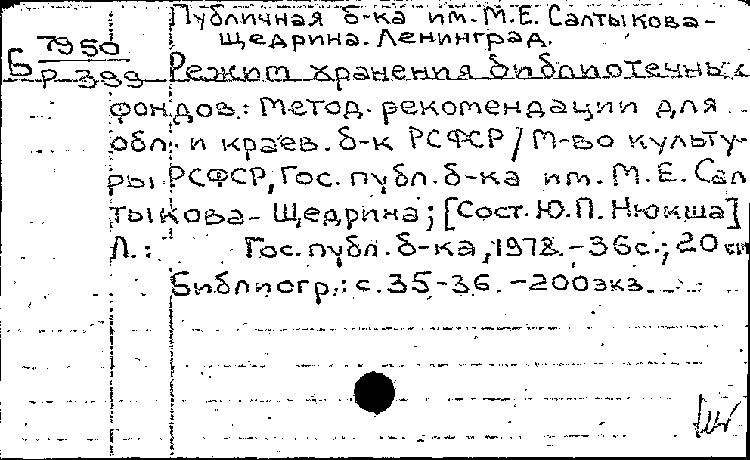 Публичная б-ка им. М.Е. Салтыкова-
Щедрина. Ленинград.
Б 7950
Р 399
Режим хранения библиотечных
фондов.: Метод. рекомендации для
обл. и краев. б-к РСФСР/М-во культу-
ры РСФСР, Гос. публ. б-ка им. М.Е. Сал
тыкова-Щедрина; [Сост. Ю.П. Нюкша]
Л.: Гос. публ. б-ка, 1978. - 36с.; 20 см
Библиогр.: с. 35-36. - 200экз.